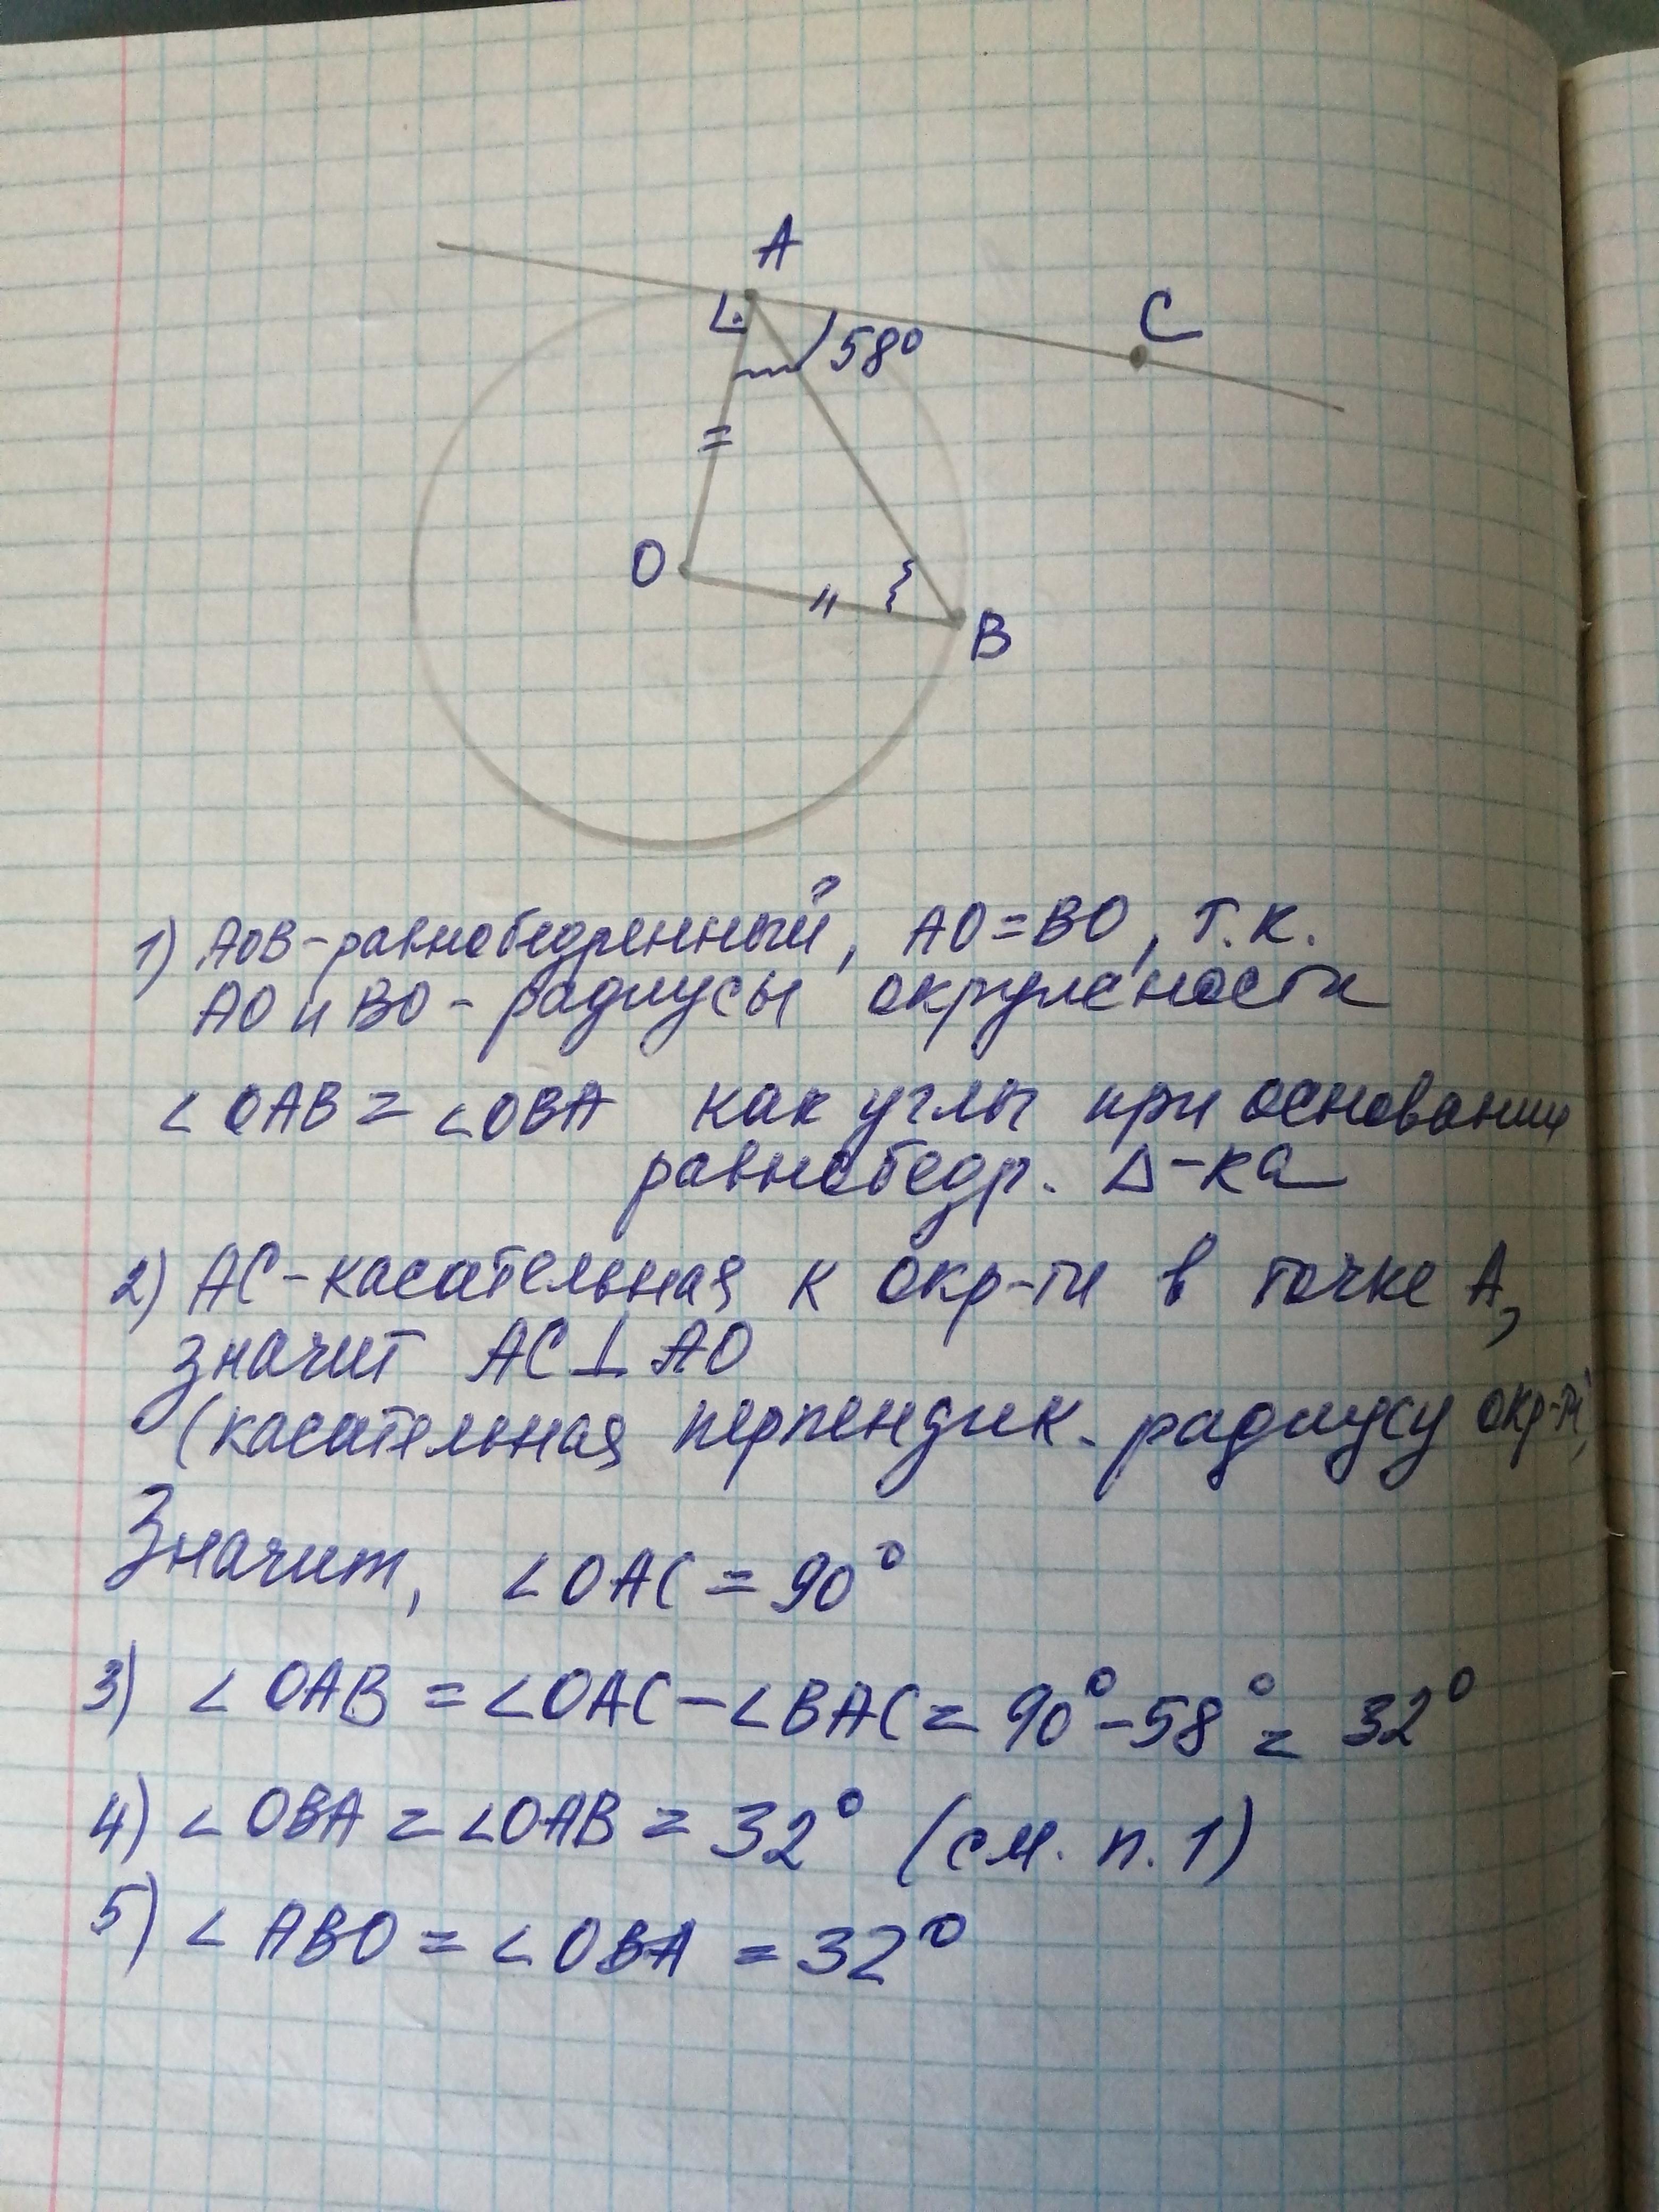 A
C
58°
O
B
1) AOB - равнобедренный, AO = BO, т.к.
AO и BO - радиусы окружности
∠OAB = ∠OBA как углы при основании
равнобедр. Δ-ка
2) AC - касательная к окр-ти в точке A,
значит AC ⊥ AO
(касательная перпендик. радиусу окр-ти)
Значит, ∠OAC = 90°
3) ∠OAB = ∠OAC - ∠BAC = 90° - 58° = 32°
4) ∠OBA = ∠OAB = 32° (см. п. 1)
5) ∠ABO = ∠OBA = 32°